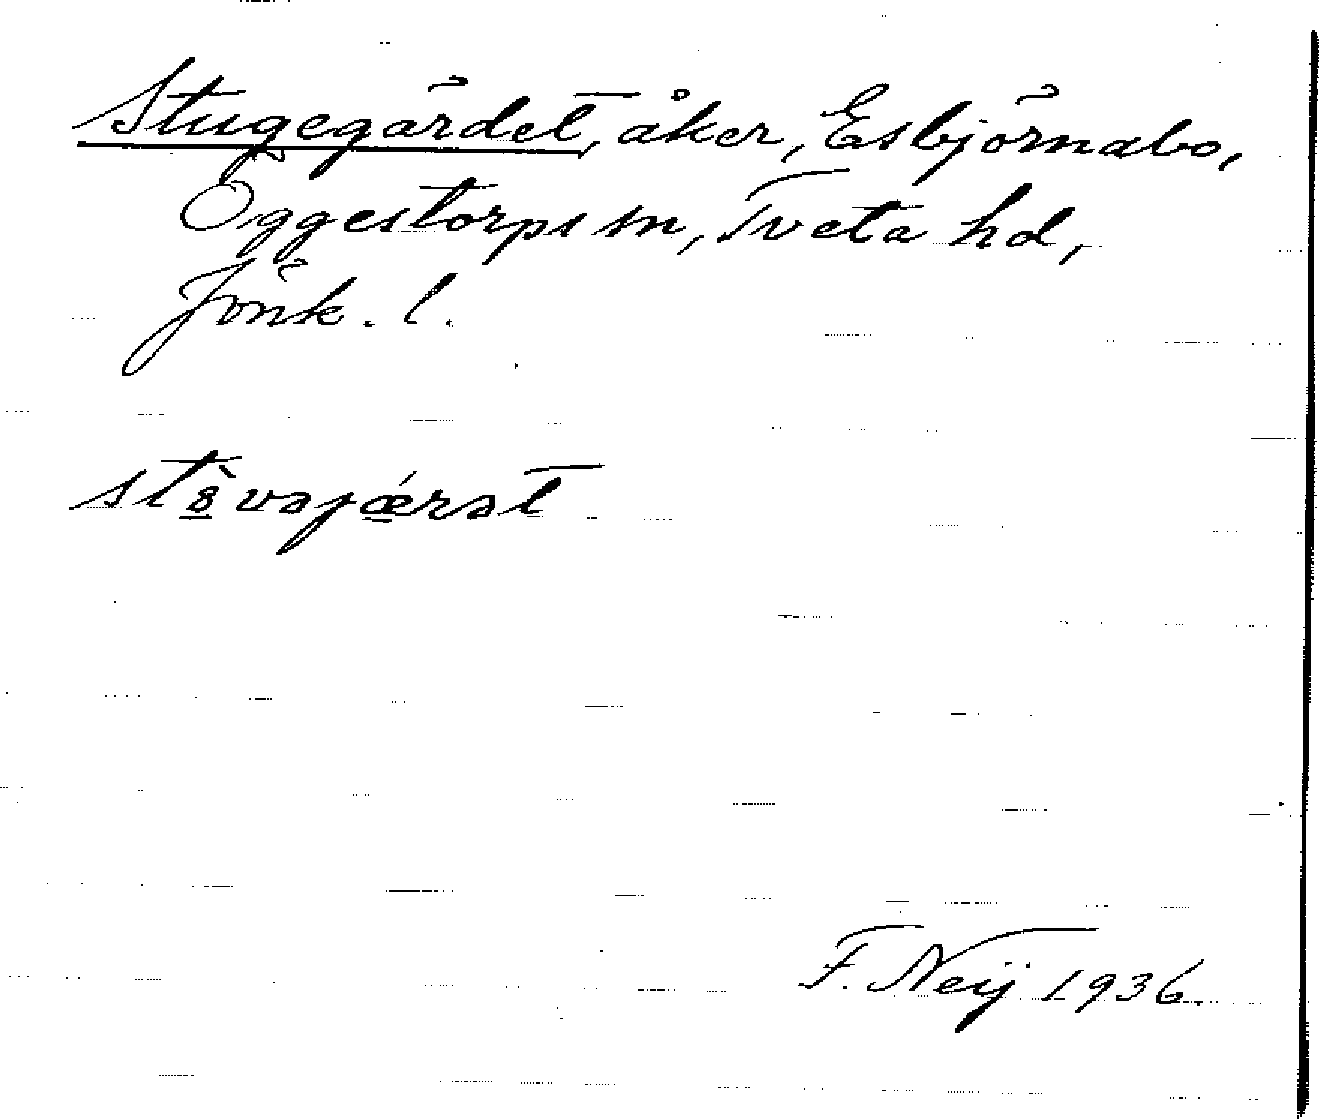 Stugegärdet, åker, Esbjörnabo,
Öggestorps sn, Tveta hd,
Jönk. l.
F. Neij 1936.